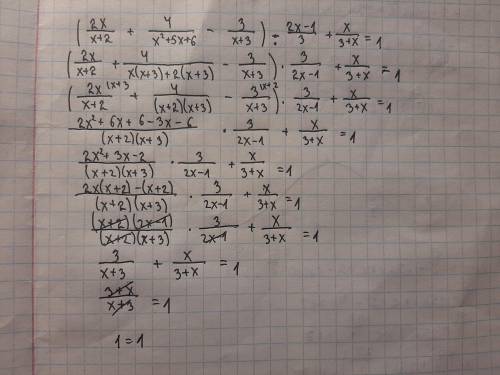 (2x/(x+2) + 4/(x²+5x+6) - 3/(x+3)) : (2x-1)/3 + x/(3+x) = 1
(2x/(x+2) + 4/(x(x+3)+2(x+3)) - 3/(x+3)) · 3/(2x-1) + x/(3+x) = 1
(2x^{|x+3}/(x+2) + 4/((x+2)(x+3)) - 3^{|x+2}/(x+3)) · 3/(2x-1) + x/(3+x) = 1
(2x²+6x+6-3x-6)/((x+2)(x+3)) · 3/(2x-1) + x/(3+x) = 1
(2x²+3x-2)/((x+2)(x+3)) · 3/(2x-1) + x/(3+x) = 1
(2x(x+2)-(x+2))/((x+2)(x+3)) · 3/(2x-1) + x/(3+x) = 1
((x+2)(2x-1))/((x+2)(x+3)) · 3/(2x-1) + x/(3+x) = 1
3/(x+3) + x/(3+x) = 1
(3+x)/(x+3) = 1
1 = 1